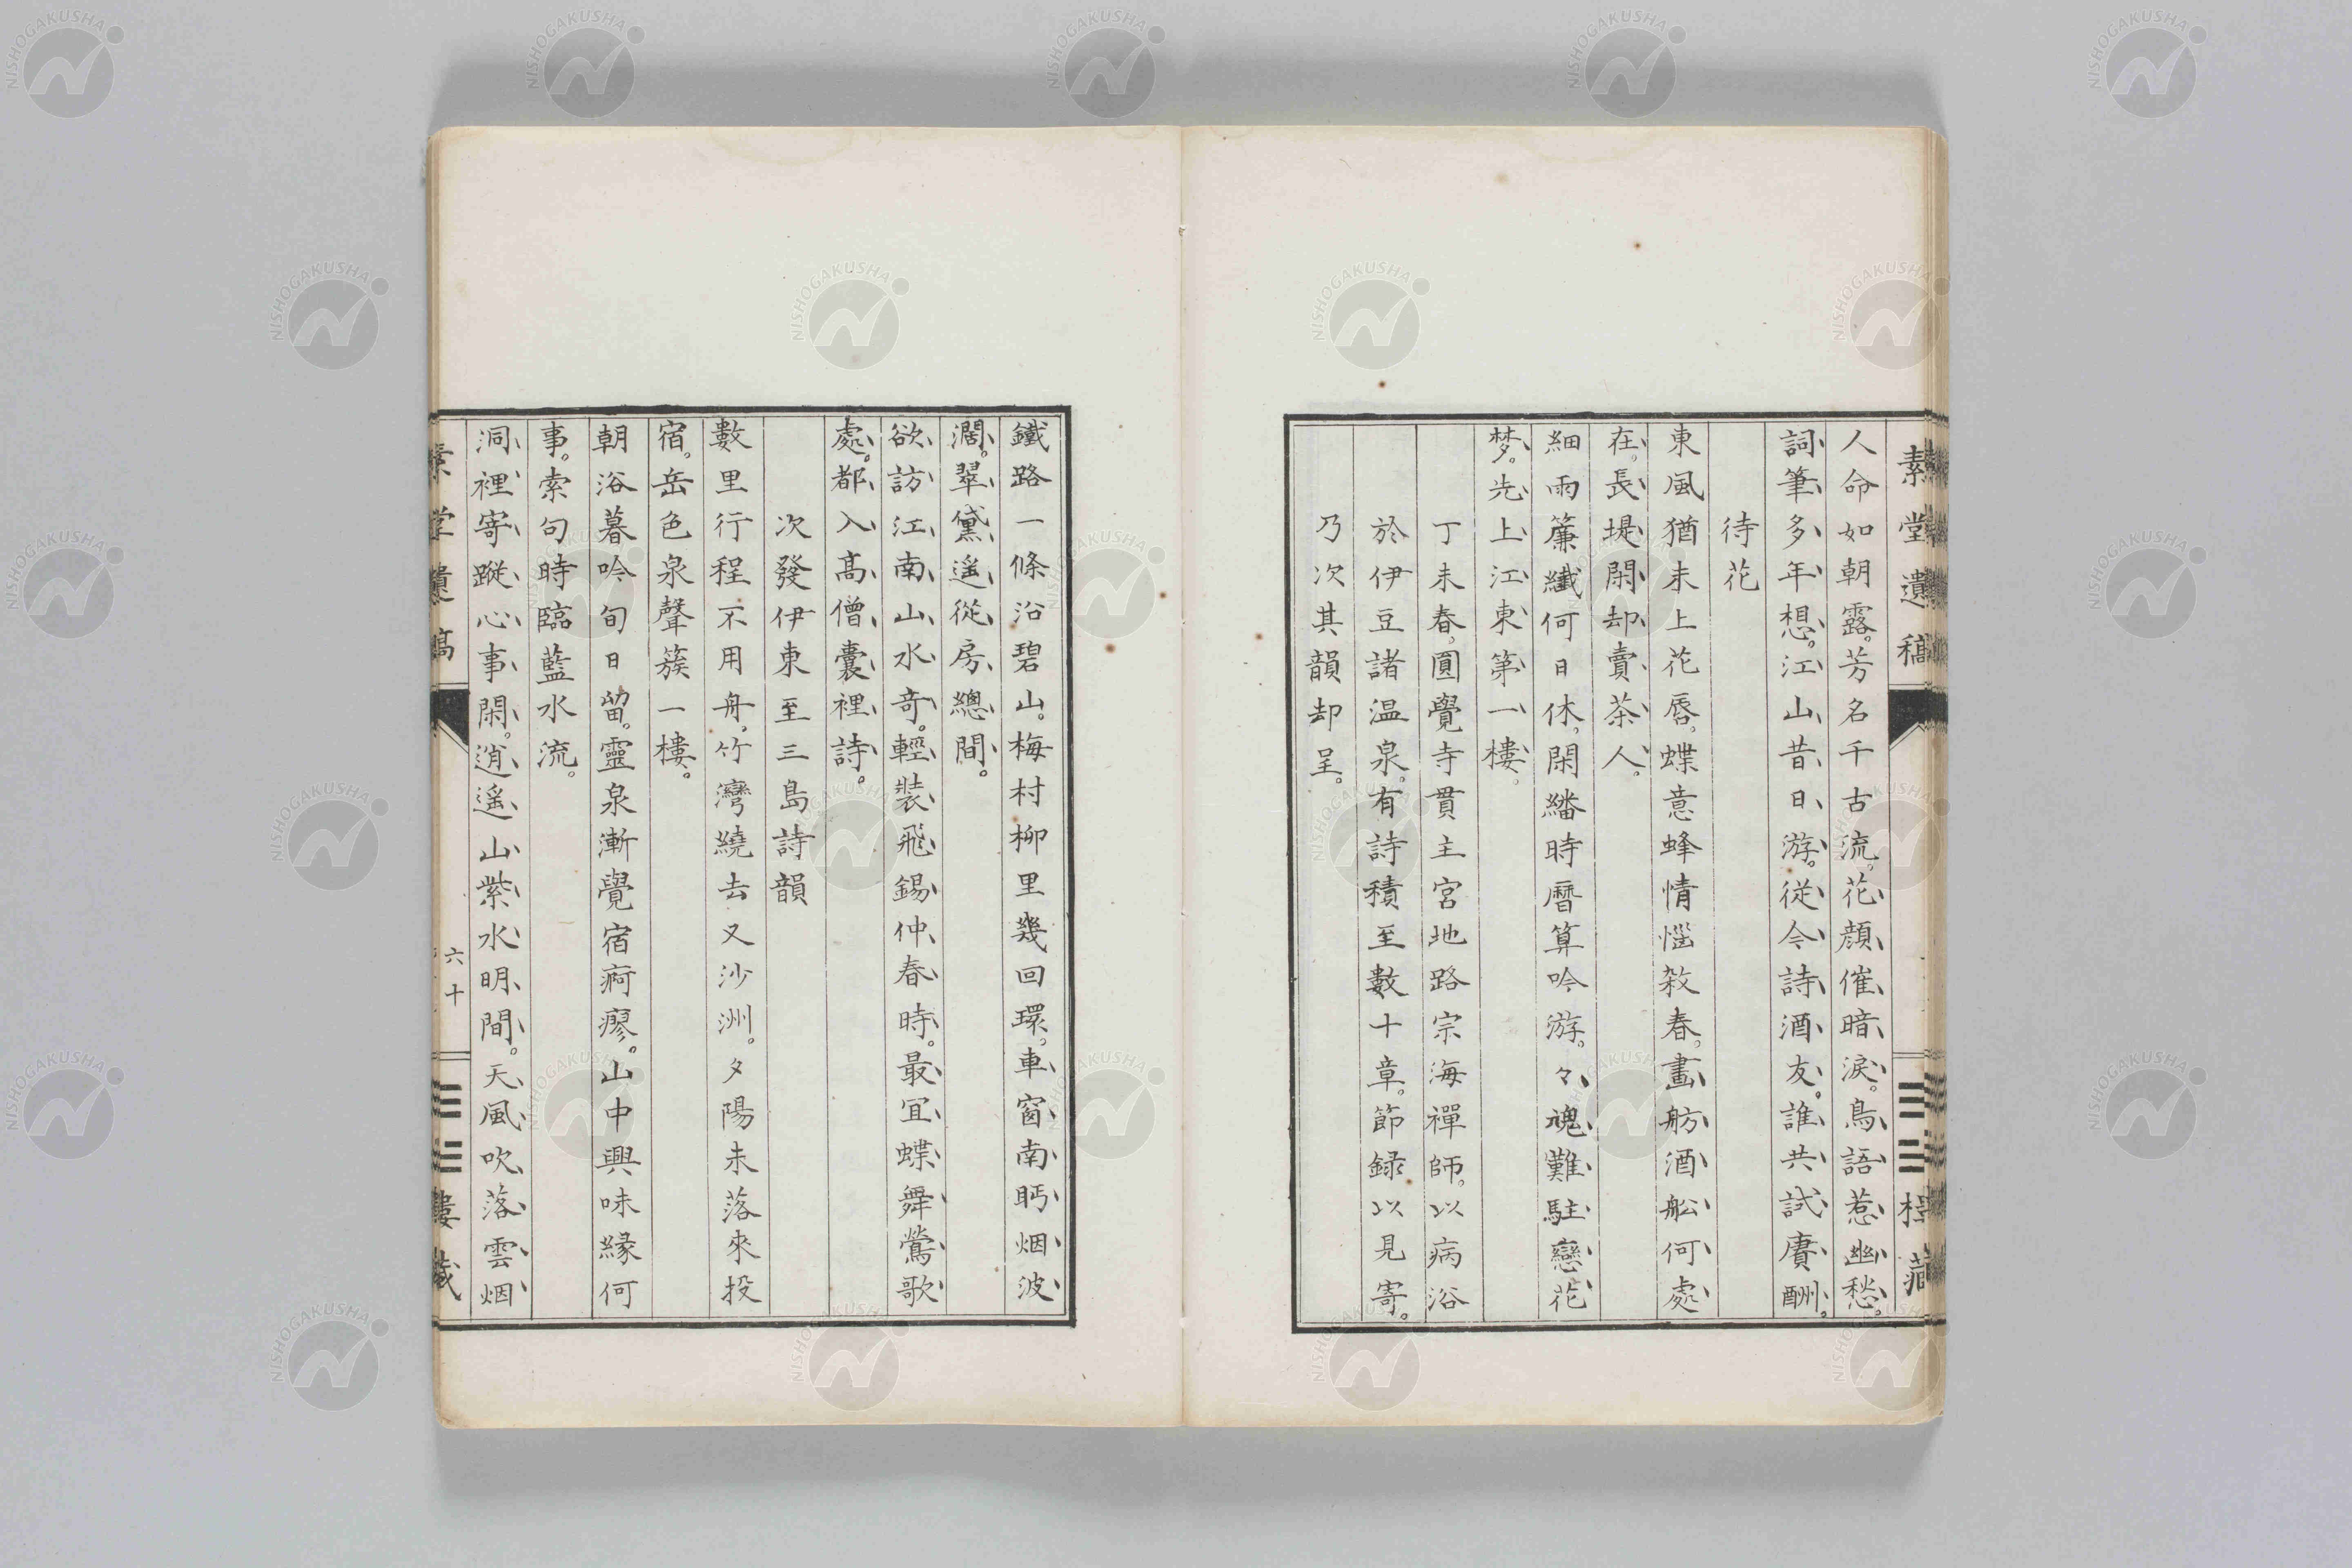 素堂遺稿
人命如朝露。芳名千古流。花顏催暗淚。鳥語惹幽愁。
詞筆多年想。江山昔日游。從今詩酒友。誰共試賡酬。
待花
東風猶未上花唇。蝶意蜂情惱殺春。畫舫酒船何處
在。長堤閑却賣茶人。
細雨簾纖何日休。閑繙時曆算吟游。々魂難駐戀花
梦。先上江東第一樓。
丁未春。圓覺寺貫主宮地路宗海禪師。以病浴
於伊豆諸温泉。有詩積至數十章。節録以見寄。
乃次其韻却呈。
鐵路一條沿碧山。梅村柳里幾回環。車窗南眄烟波
濶。翠黛遥從房總間。
欲訪江南山水奇。輕裝飛錫仲春時。最宜蝶舞鶯歌
處。都入高僧囊裡詩。
次發伊東至三島詩韻
數里行程不用舟。竹灣繞去又沙洲。夕陽未落來投
宿。岳色泉聲簇一樓。
朝浴暮吟旬日留。靈泉漸覺宿痾瘳。山中興味緣何
事。索句時臨藍水流。
洞裡寄蹤心事閑。逍遥山紫水明間。天風吹落雲烟
素堂遺稿
六十
三三樓藏
NISHOGAKUSHA